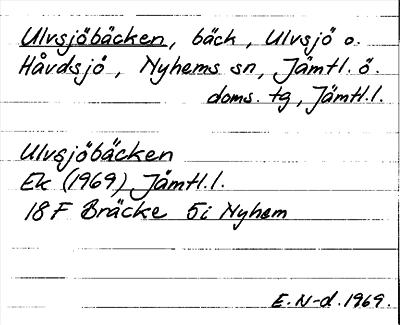 Ulvsjöbäcken, bäck, Ulvsjö o.
Håvdsjö, Nyhems sn, Jämtl. ö.
doms. tg, Jämtl.l.
Ulvsjöbäcken
Ek (1969) Jämtl.l.
18F Bräcke 5i Nyhem
E. N-d. 1969.